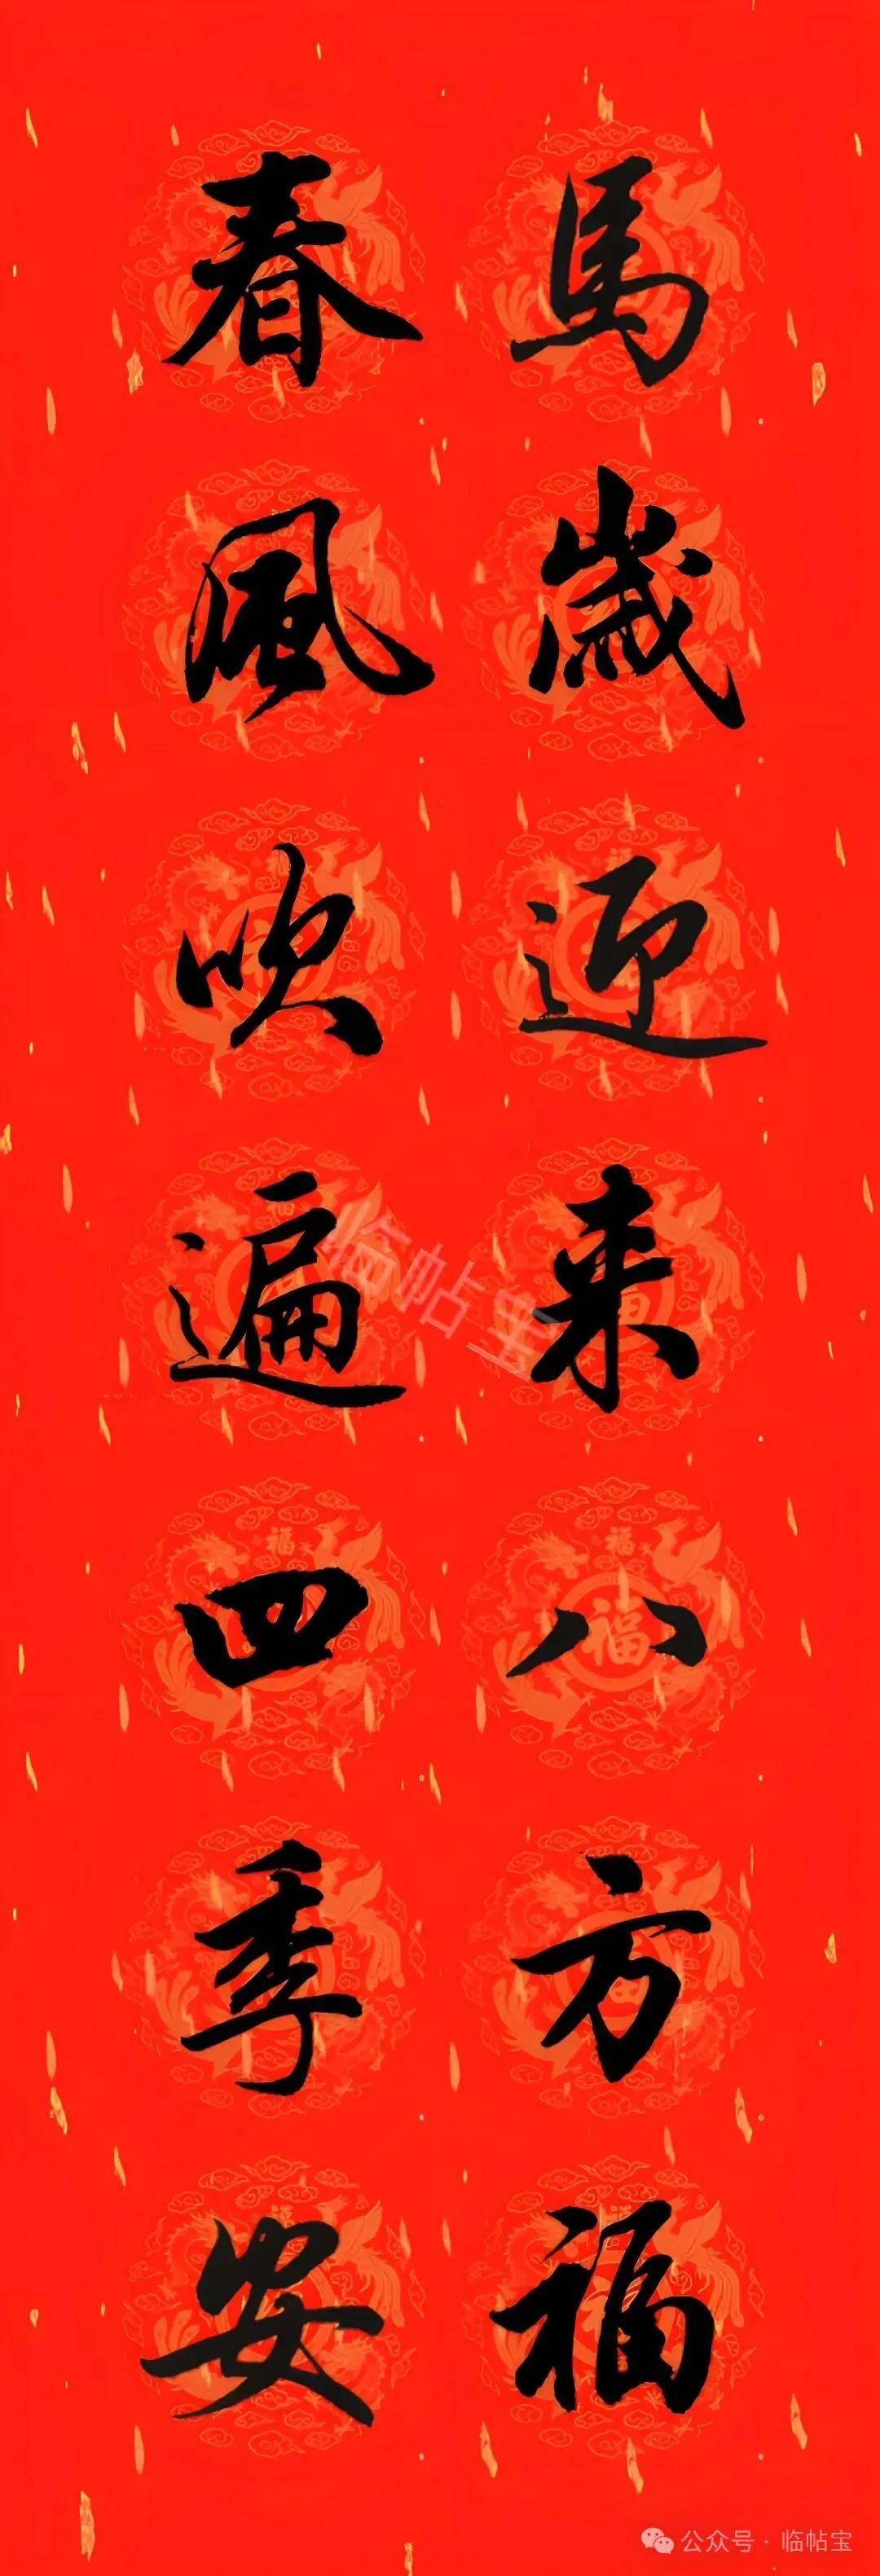 馬歲迎来八方福
春風吹遍四季安
临帖宝
公众号·临帖宝